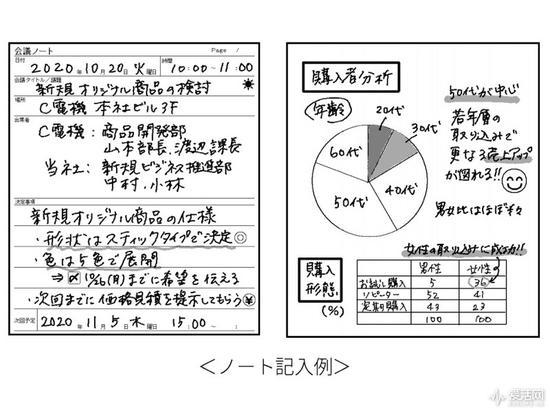 会議ノート Page /
日付 2020年10月20日 火曜日 時間 10:00〜11:00
会議タイトル/議題
新規オリジナル商品の検討
場所
C電機 本社ビル3F
出席者
C電機：商品開発部
山本部長、渡辺課長
当社：新規ビジネス推進部
中村、小林
決定事項
新規オリジナル商品の仕様
・形状はスティックタイプで決定◎
・色は5色で展開
⇒〆10/26(月)までに希望を伝える
・次回までに価格見積を提示してもらう¥
次回予定
2020年11月5日 木曜日 15:00〜
購入者分析
年齢
20代
30代
40代
50代
60代
50代が中心
若年層の
取り込みで
更なる売上アップ
が図れる!!
男女比はほぼ半々
女性の取り込みに成功!!
購入形態
(%)
男性 女性
お試し購入 5 36
リピーター 52 41
定期購入 43 23
100 100
＜ノート記入例＞
爱活网